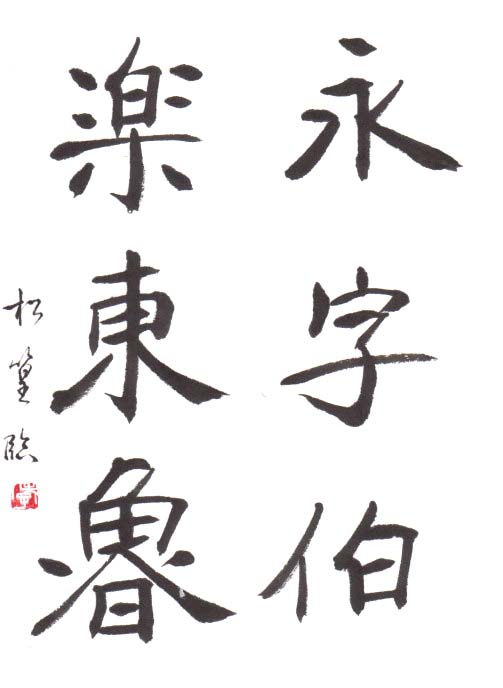 永字伯
楽東魯
松篁臨